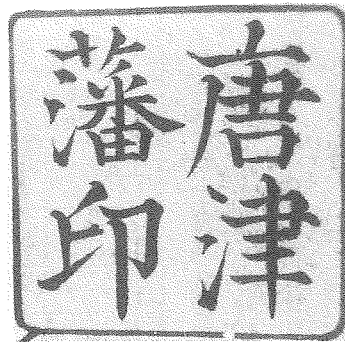 唐津
藩印